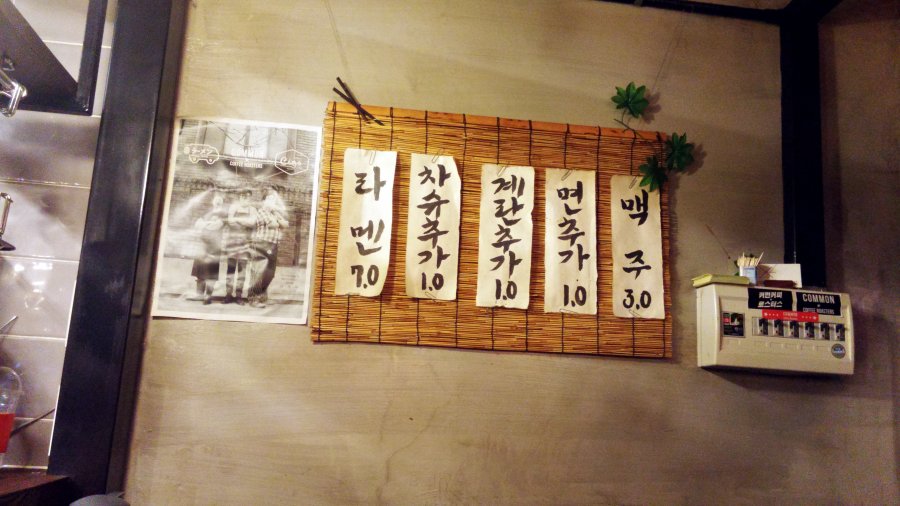 라멘
7.0
차슈추가
1.0
계란추가
1.0
면추가
1.0
맥주
3.0
ラーメン
COMMON
COFFEE ROASTERS
커먼커피
로스터스
COMMON
COFFEE ROASTERS